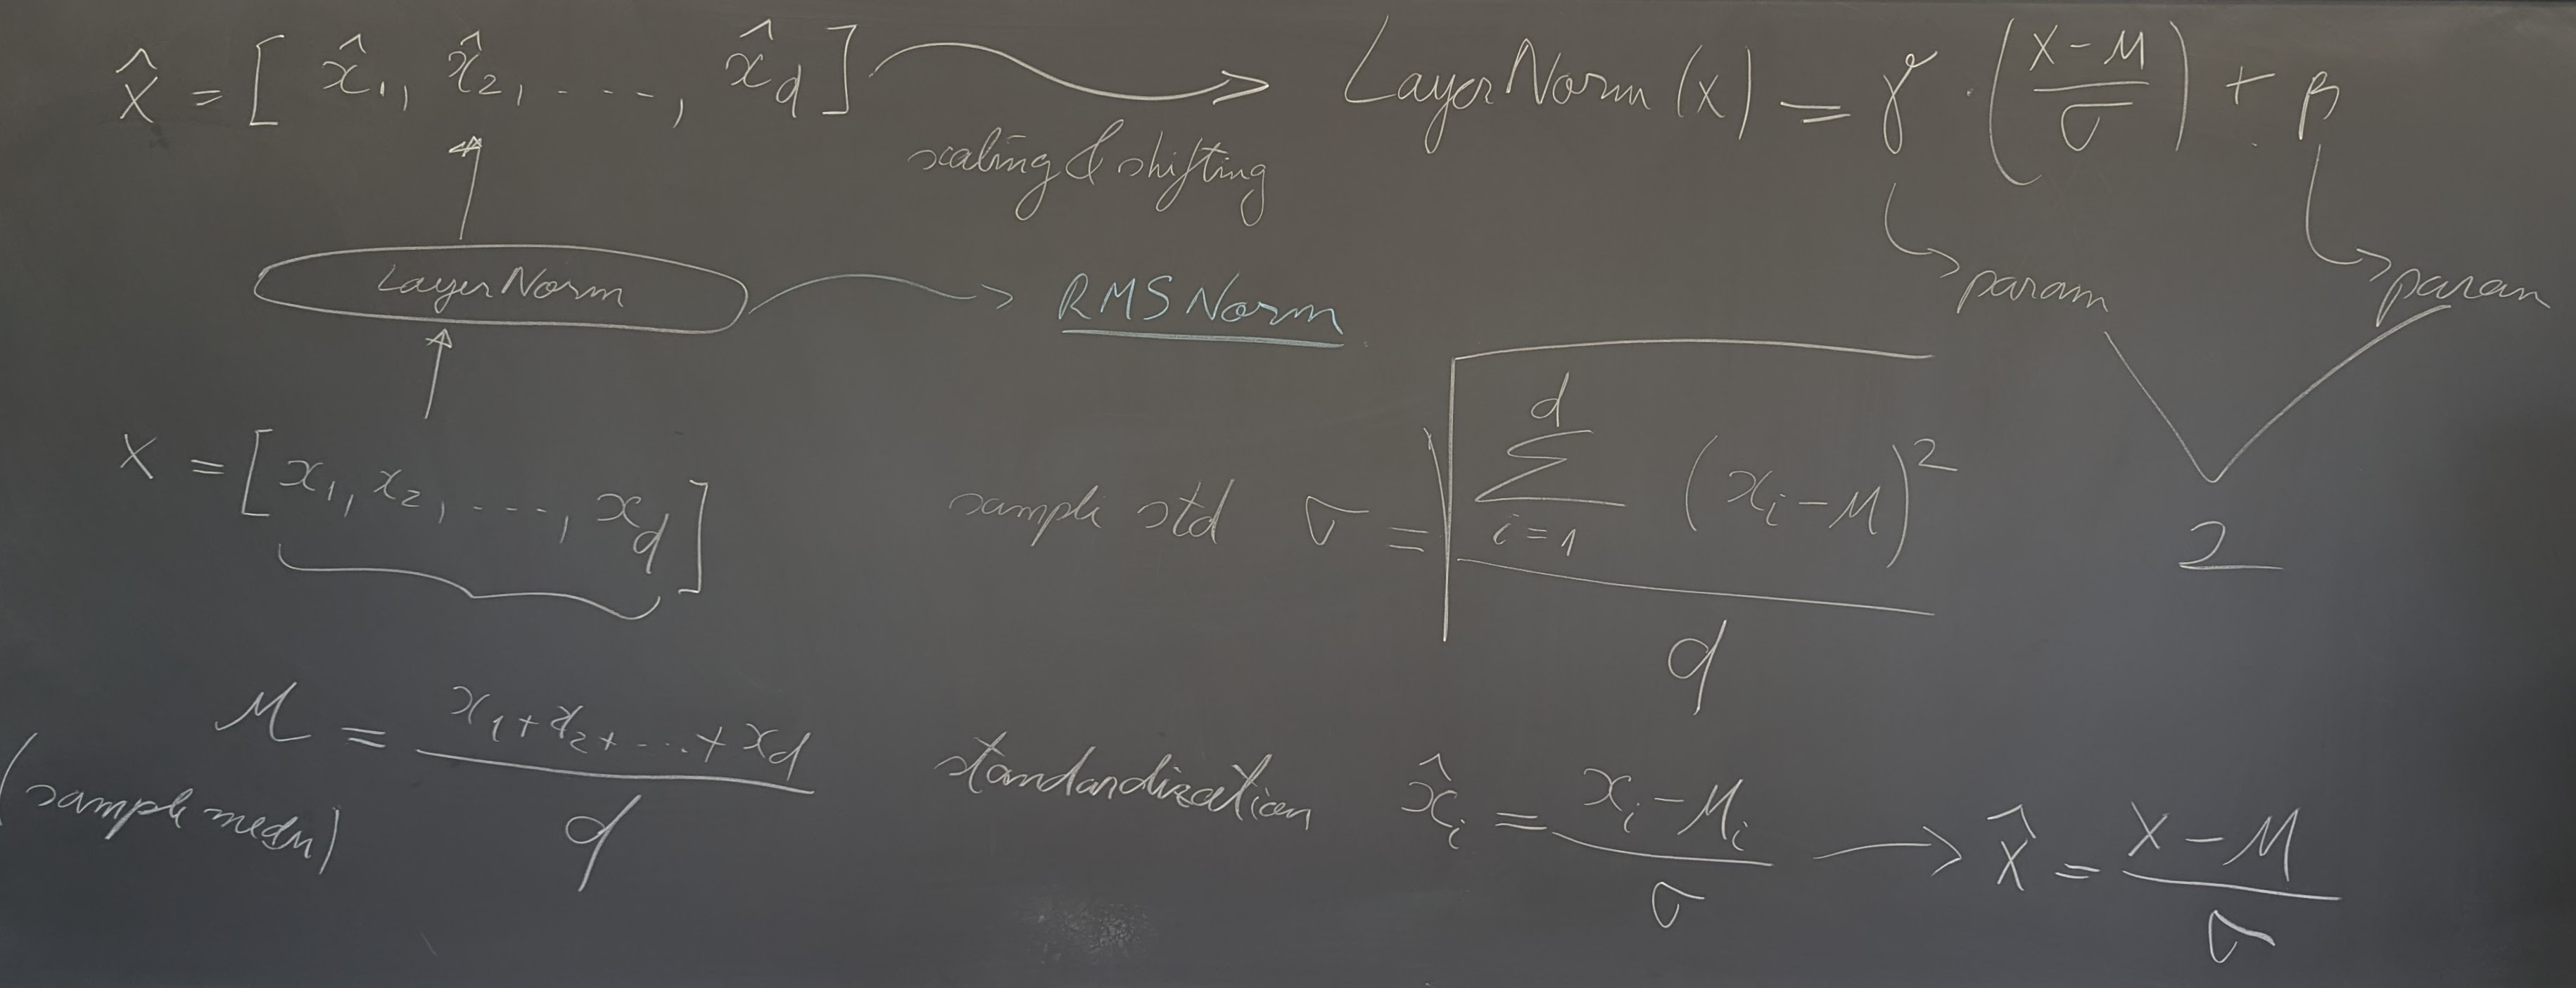 x̂ = [ x̂₁, x̂₂, - - - -, x̂_d ]
scaling & shifting
LayerNorm (x) = γ · ( (x - μ) / σ ) + β
param
param
2
LayerNorm
RMSNorm
x = [ x₁, x₂, - - - -, x_d ]
sample std σ = √( ∑_{i=1}^{d} (x_i - μ)² / d )
μ = (x₁ + x₂ + ... + x_d) / d
(sample mean)
standardization x̂_i = (x_i - μ_i) / σ → x̂ = (x - μ) / σ